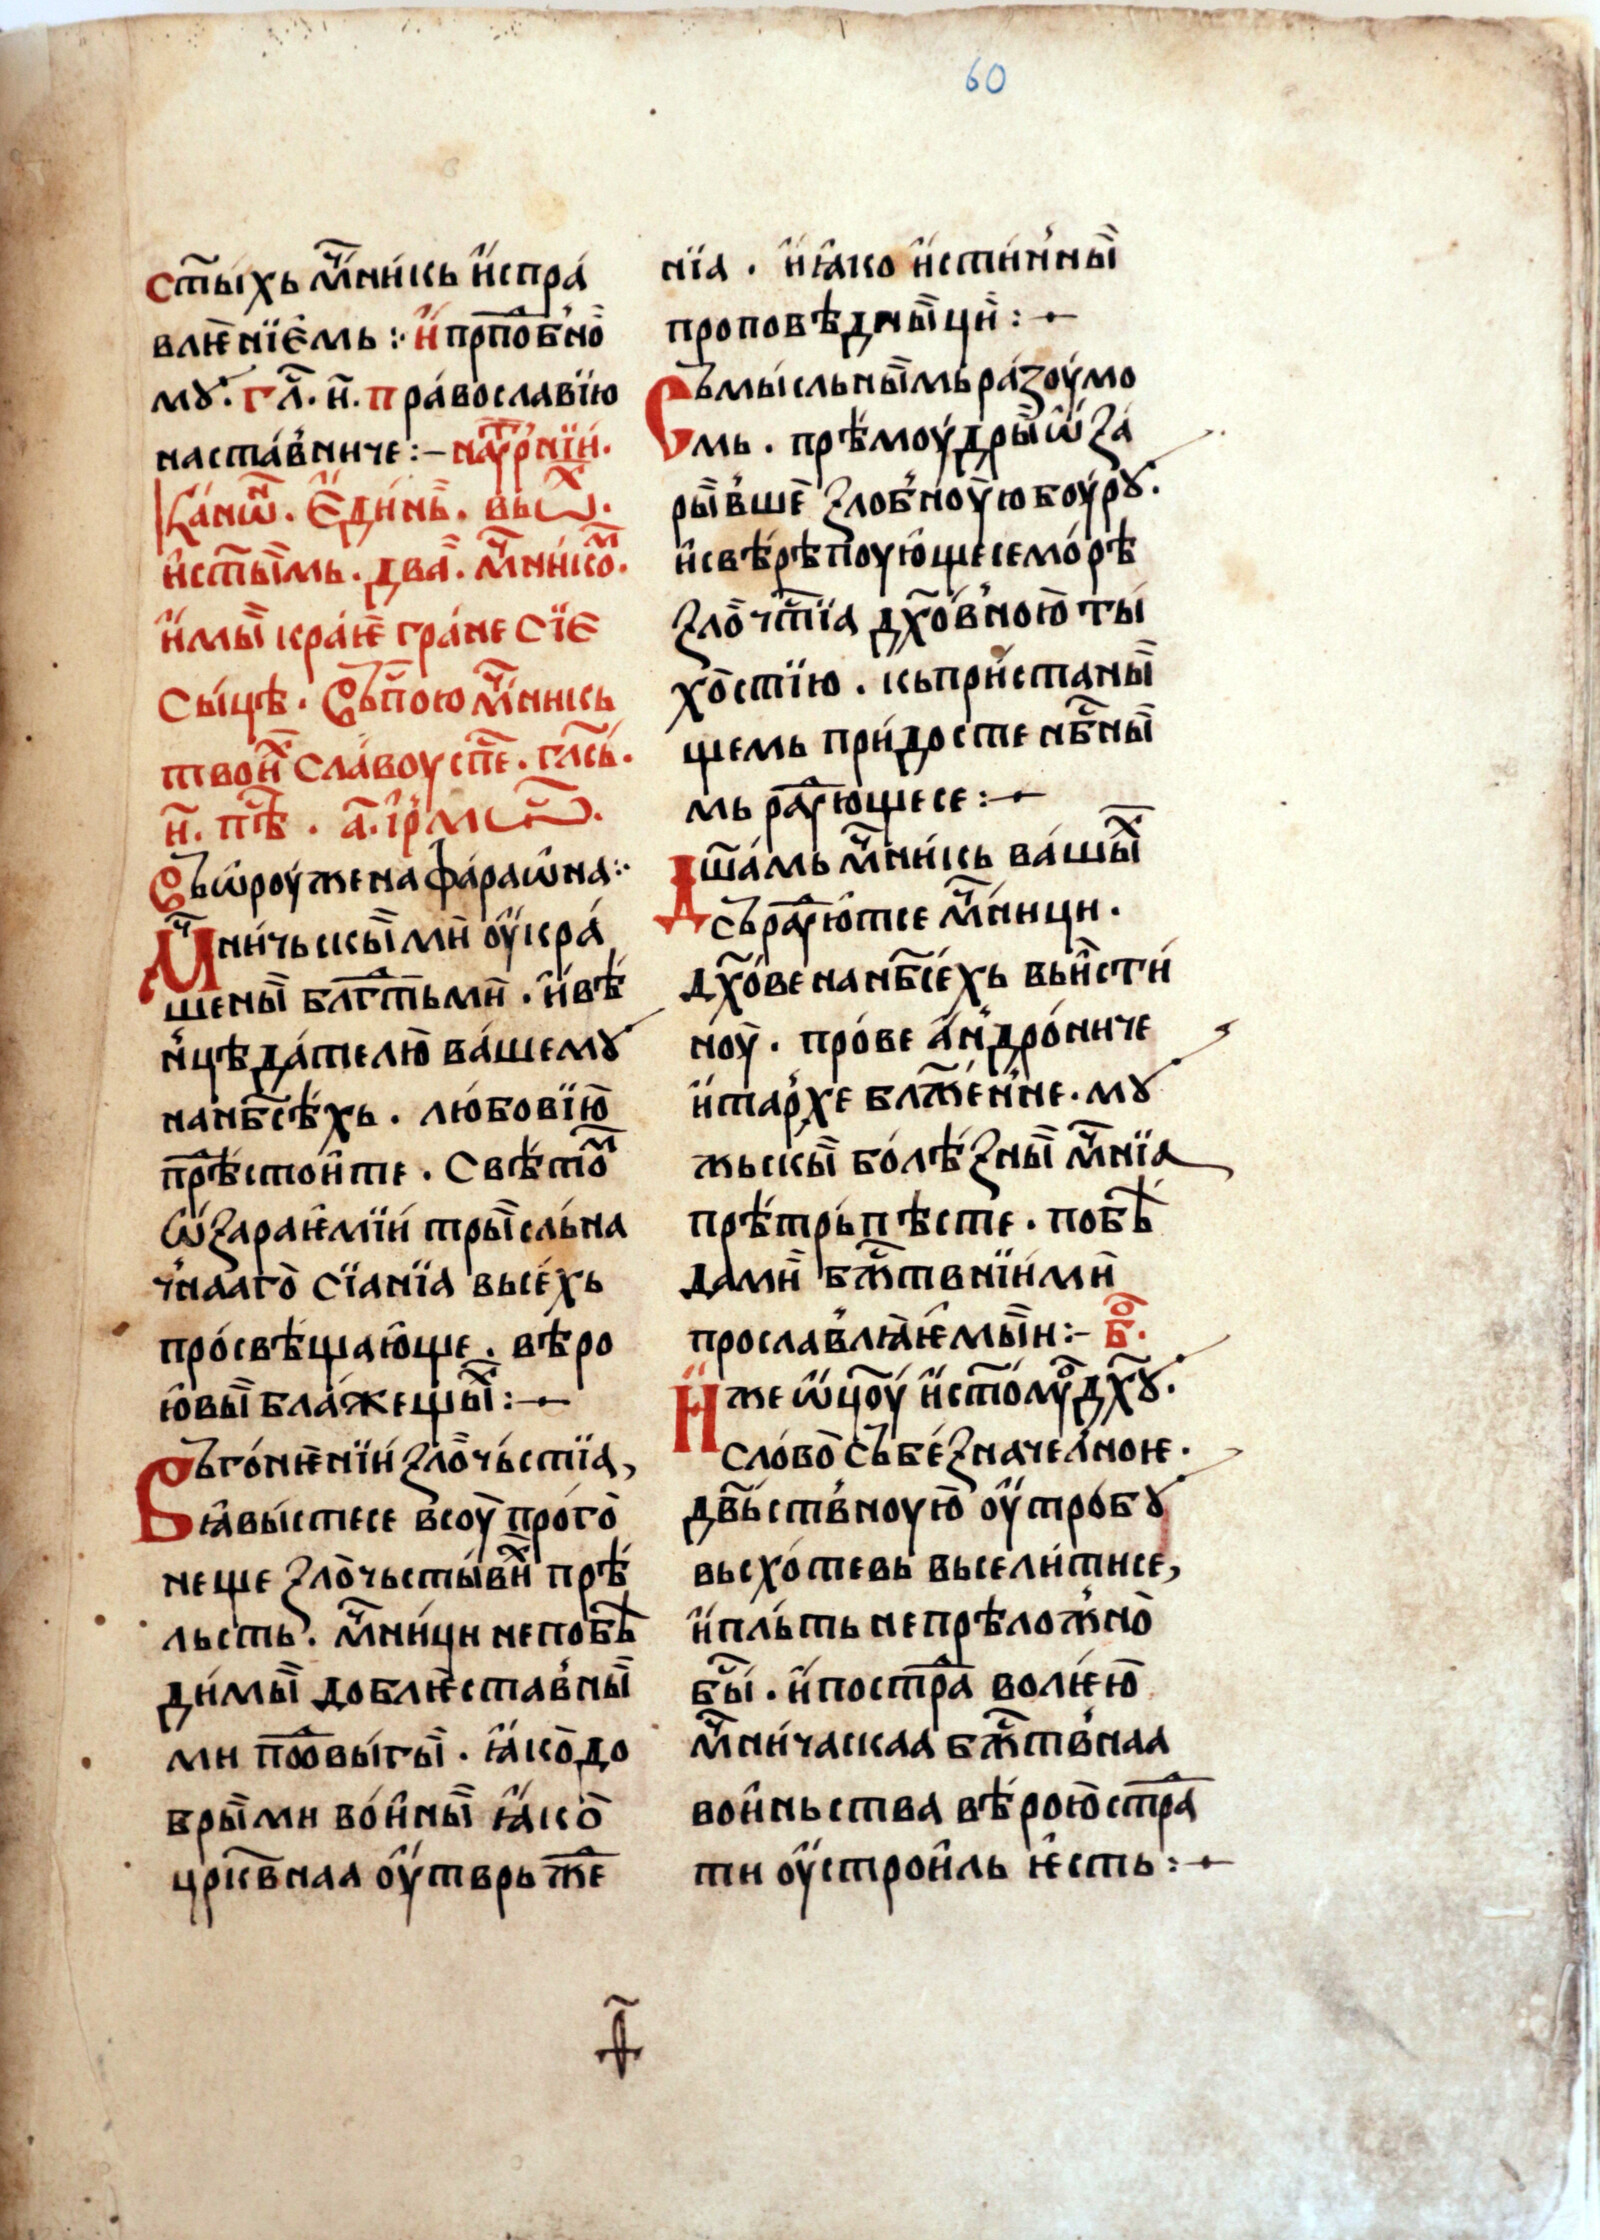 60
ст҃ыхь мч҃никь испра
влѥнїемь :· и прпⷣобно
мꙋ · гл҃ · и҃ · православїю
наставниче :– на оутрнїи ·
Канѡⷩ · Единь · вьсⷯѣ ·
и ст҃ыимь · два · мч҃никоⷨ ·
имыи краѥ гране сїе
сыцѣ · Сьпою мч҃никь
твоиⷯ славоу сп҃е · глⷭсь ·
и҃ · пѣⷭ · а҃ · ірмⷪсь ·
Сьѡроуже на фараѡна :·
Мⷱничьскыими оукра
шеныи блгⷣтьми · и вѣ
нцѣдателю вашемꙋ
на нб҃сѣхь · любовїю
прⷣѣстоите · свѣтоⷨ
ѡзараѥмїи трысльна
чнааго сїанїа вьсехь
просвѣщающе · вѣро
ю вы блажещыиⷯ :–
Вь гонѥнїи злочьстїа,
ꙗвыстесе всоу прого
неще злочьстывиⷯ прѣ
льсть · мч҃ници непобѣ
димыи доблѥставны
ми подⷣвыгы · ꙗко до
брыими воины ꙗко
црⷦвнаа оутврьжⷣе
нїа · и ꙗко истинныи
проповѣдныци :–
Сь мысльныимь разоумо
мь · прѣмоудры ѡза
рывше злобноую боурꙋ ·
и свѣрѣпоующесе морѣ
злочтⷭїа дх҃овною ты
хостїю · кь пристаны
щемь придосте нбⷭны
мь радⷣующесе :–
Дш҃амь мч҃никь вашыиⷯ
сьрадⷣуютсе мч҃ници ·
дх҃ове на нб҃сехь вь исти
ноу · прове андрониче
и тарⷯе блаженне · мꙋ
жьскы болѣзны мч҃нїа
прѣтрьпѣсте · побѣ
дами бжⷭтвнїими
прославлꙗѥмыи :– бⷪ ·
Иже ѡц҃оу и ст҃омꙋ дх҃ꙋ ·
слово сьбезначелноѥ ·
дв҃ьствноую оутробꙋ
вьсхотевь вьселитисе,
и пльть непрѣложно
бы · и по стрⷭа волѥю
мч҃ничаскаа бжⷭтвнаа
воиньства вѣрою стрⷭа
ти оустроиль ѥсть :–